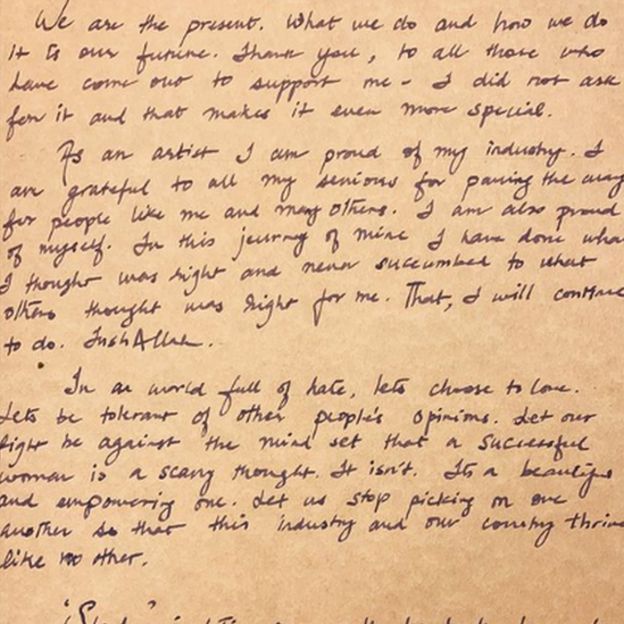 We are the present. What we do and how we do
it is our future. Thank you, to all those who
have come out to support me - I did not ask
for it and that makes it even more special.
As an artist I am proud of my industry. I
am grateful to all my seniors for paving the way
for people like me and many others. I am also proud
of myself. In this journey of mine I have done what
I thought was right and never succumbed to what
others thought was right for me. That, I will continue
to do. InshAllah.
In a world full of hate, lets choose to love.
Lets be tolerant of other people's opinions. Let our
fight be against the mind set that a successful
woman is a scary thought. It isn't. Its a beautiful
and empowering one. Let us stop picking on one
another so that this industry and our country thrive
like no other.